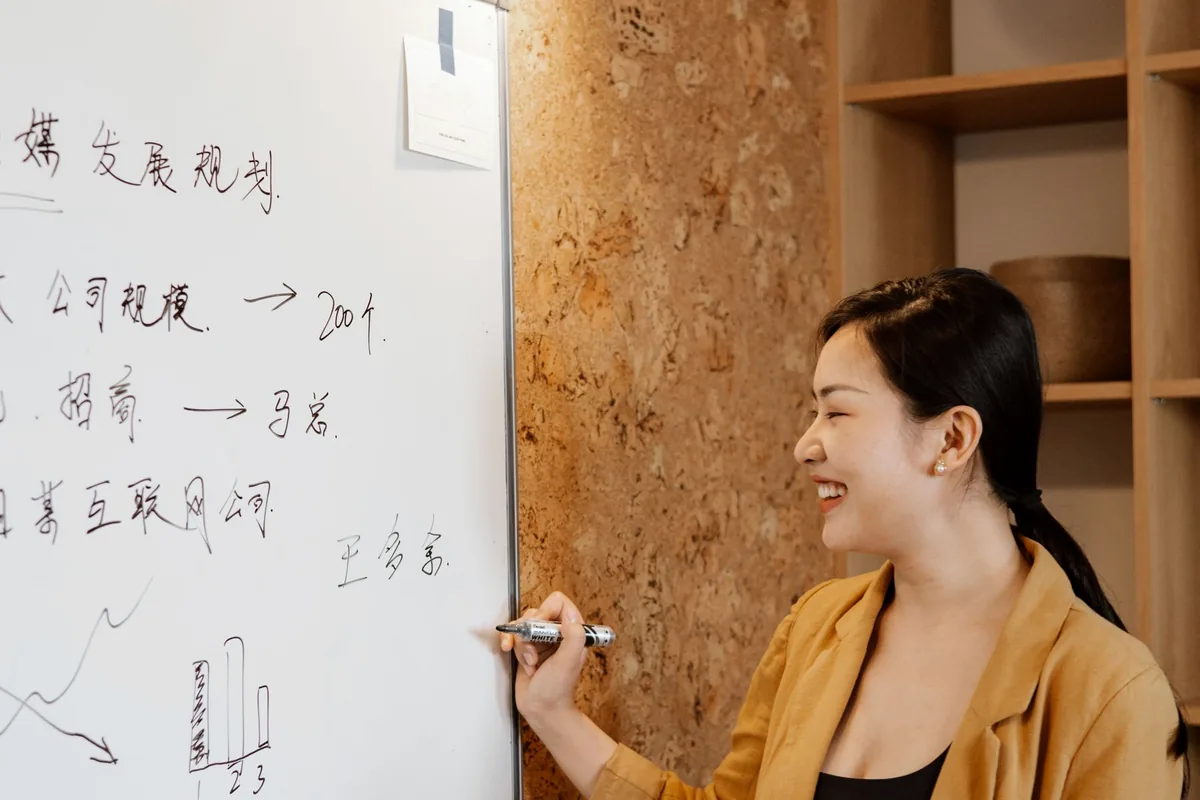 媒发展规划.
公司规模. → 200个.
. 招商 → 马总.
某互联网公司.
王多余.
2 3
Pentel
WHITE